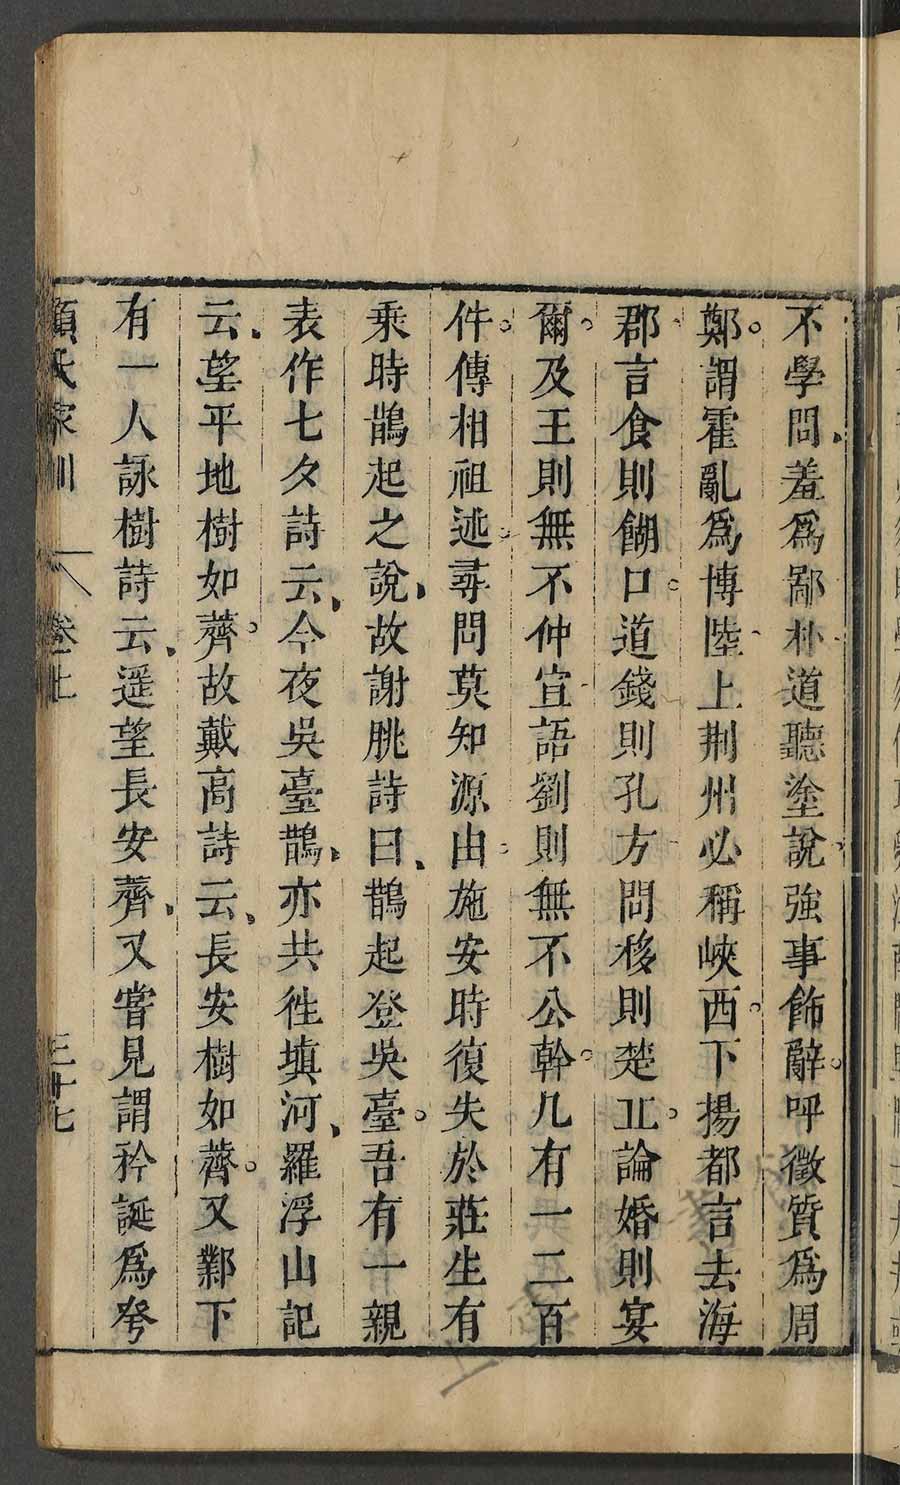 不學問羞爲鄙朴道聽塗說強事飾辭呼徵質爲周
鄭謂霍亂爲博陸上荆州必稱峽西下揚都言去海
郡言食則餬口道錢則孔方問移則楚丘論婚則宴
爾及王則無不仲宣語劉則無不公幹凡有一二百
件傳相祖述尋問莫知源由施安時復失於莊生有
乘時鵲起之說故謝朓詩曰鵲起登吳臺吾有一親
表作七夕詩云今夜吳臺鵲亦共徃填河羅浮山記
云望平地樹如薺故戴高詩云長安樹如薺又鄴下
有一人詠樹詩云遥望長安薺又嘗見謂矜誕爲夸
顏氏家訓 卷上 三十七